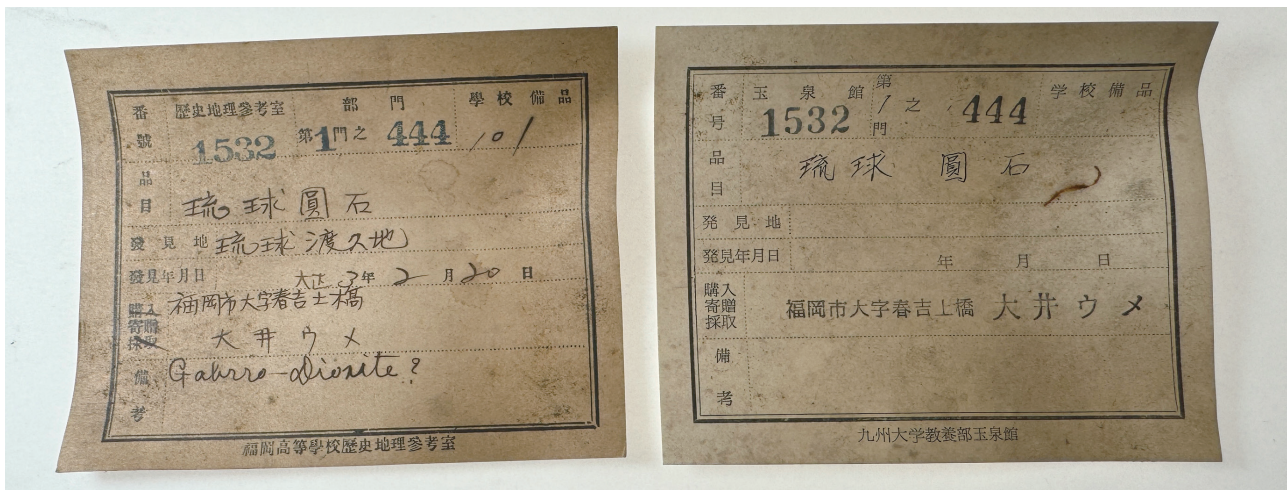 番號 歷史地理參考室 部門 學校備品
1532 第1門之 444 101
品目 琉球圓石
發見地 琉球渡久地
發見年月日 大正3年2月20日
購入寄贈採取 福岡市大字春吉土橋
大井ウメ
備考 Gabrro-Diorite?
福岡高等學校歷史地理參考室
番号 玉泉館 第1門之 444 学校備品
1532
品目 琉球圓石
発見地
発見年月日 年 月 日
購入寄贈採取 福岡市大字春吉上橋 大井ウメ
備考
九州大学教養部玉泉館